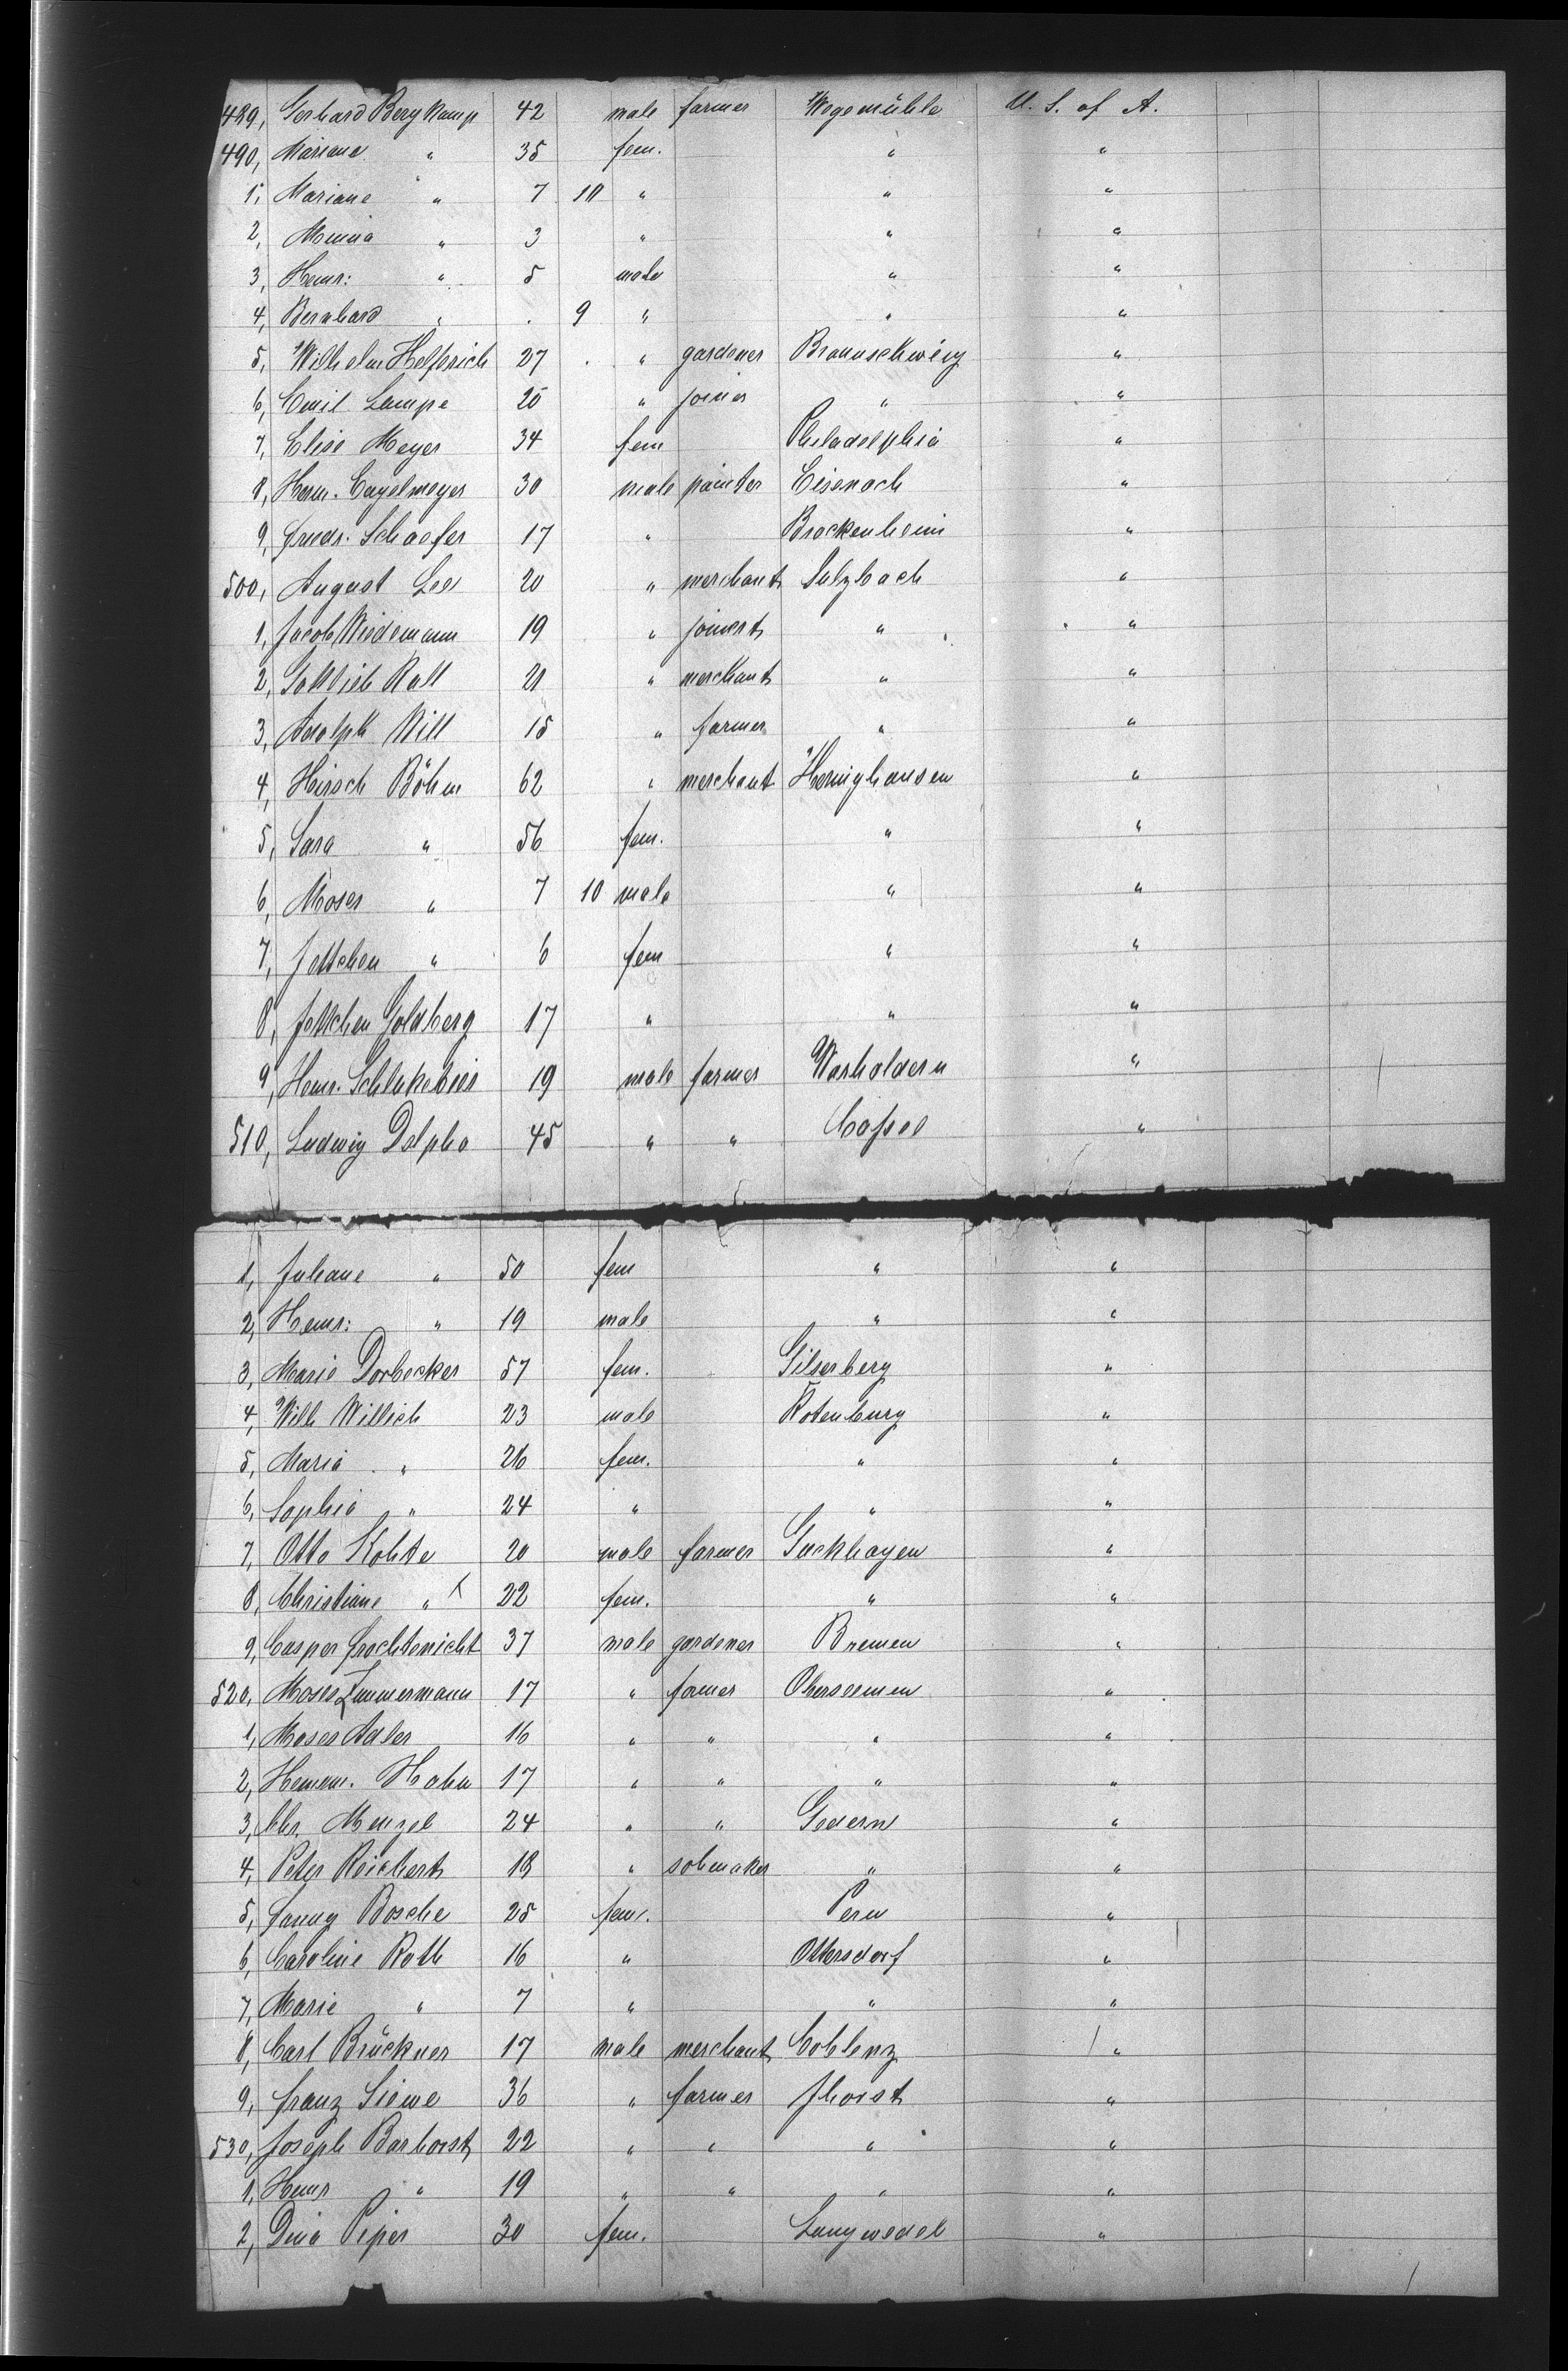 489, Gerhard Bergkamp 42 male farmer Wegemühle U. S. of A.
490, Mariane " 35 fem. " "
1, Mariane " 7 10 " " "
2, Minna " 3 " " "
3, Heinr: " 5 male " "
4, Bernhard " . 9 " " "
5, Wilhelm Helfrich 27 " gardener Braunschweig "
6, Emil Lampe 25 " joiner " "
7, Elise Meyer 34 fem Philadelphia "
8, Herm. Engelmeyer 30 male painter Eisenach "
9, Friedr. Schaefer 17 " Brockenheim "
500, August Lee 20 " merchant Sulzbach "
1, Jacob Wiedemann 19 " " "
2, Gottlieb Rall 21 " merchant " "
3, Adolph Will 15 " farmer " "
4, Hirsch Böhm 62 " merchant Heringhausen "
5, Sara " 56 fem. " "
6, Moses " 7 10 male " "
7, Jettchen " 6 fem " "
8, Jettchen Goldberg 17 " " "
9, Heinr. Schlukebier 19 male farmer Warholdern "
510, Ludwig Delpho 45 " " Cassel "
1, Juliane " 50 fem " "
2, Heinr: " 19 male " "
3, Marie Dorbecker 57 fem. Gilserberg "
4, Wilh Willich 23 male Rotenburg "
5, Maria " 26 fem. " "
6, Sophia " 24 " " "
7, Otto Kohte 20 male farmer Guckhagen "
8, Christiane " 22 fem. " "
9, Casper Frochtenicht 37 male gardener Bremen "
520, Moses Zimmermann 17 " farmer Oberseemen "
1, Moses Adler 16 " " " "
2, Hermm. Hahn 17 " " " "
3, Chr. Menzel 24 " " Gedern "
4, Peter Reichert 18 " sohmaker " "
5, Fanny Bosche 25 fem. Peru "
6, Caroline Roth 16 " Ottersdorf "
7, Marie " 7 " " "
8, Carl Brückner 17 male merchant Coblenz "
9, Franz Siewe 36 " farmer Jhorst "
530, Joseph Barhorst 22 " " " "
1, Heinr " 19 " " " "
2, Dina Piper 30 fem. Langwedel "